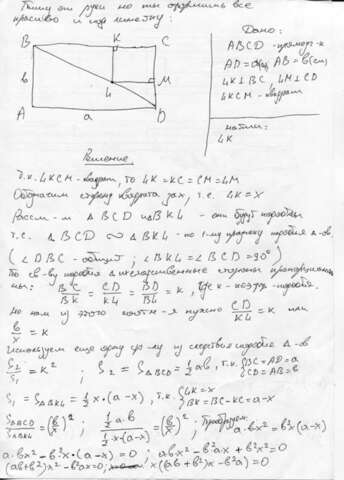 Пишу от руки но ты оформишь все
красиво и под линейку:
B K C
b M
4
A a D
Дано:
ABCD - прямоуг-к
AD = a(см), AB = b(см)
4K⊥BC, 4M⊥CD
4KCM - квадрат
найти:
4K
Решение
Т.к. 4KCM - квадрат, то 4K = KC = CM = 4M
Обозначим сторону квадрата за x, т.е. 4K = x
Рассм-м △BCD и △BK4 - они будут подобны
т.е. △BCD ∾ △BK4 - по 1-му признаку подобия △-ов
(∠DBC - общий; ∠BK4 = ∠BCD = 90°)
По св-ву подобия △ стороны пропорциональ
ны: BC/BK = CD/K4 = BD/B4 = k, где k - коэф. подобия.
Но нам из этого нужно CD/K4 = k или
b/x = k
Используем еще одну из следствия подобия △-ов
S2/S1 = k² ; S2 = S△BCD = 1/2 ab, т.к. {BC = AD = a {CD = AB = b
S1 = S△BK4 = 1/2 x·(a-x), т.к. {4K = x {BK = BC - KC = a - x
S△BCD/S△BK4 = (b/x)² ; 1/2 a·b / 1/2 x·(a-x) = (b/x)² ; Преобразуем: a·bx² = b²x(a-x)
a·bx² - b²x·(a-x) = 0 ; abx² - b²ax + b²x² = 0
(ab+b²)x² - b²ax = 0; x((ab+b²)x - b²a) = 0